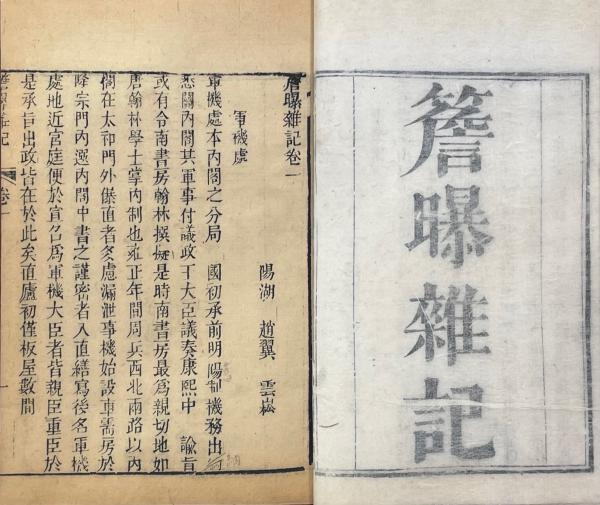 簷曝雜記
簷曝雜記卷一
陽湖 趙翼 雲崧
軍機處
軍機處本內閣之分局 國初承前明舊制機務出納
悉關內閣其軍事付議政王大臣議奏康熙中 諭旨
或有令南書房翰林撰擬是時南書房最爲親切地如
唐翰林學士掌內制也雍正年間用兵西北兩路以內
閣在太和門外儤直者多慮漏泄事機始設軍需房於
隆宗門內選內閣中書之謹密者入直繕寫後名軍機
處地近宮庭便於宣召爲軍機大臣者皆親臣重臣於
是承旨出政皆在於此矣直廬初僅板屋數間
簷曝雜記
卷一
一